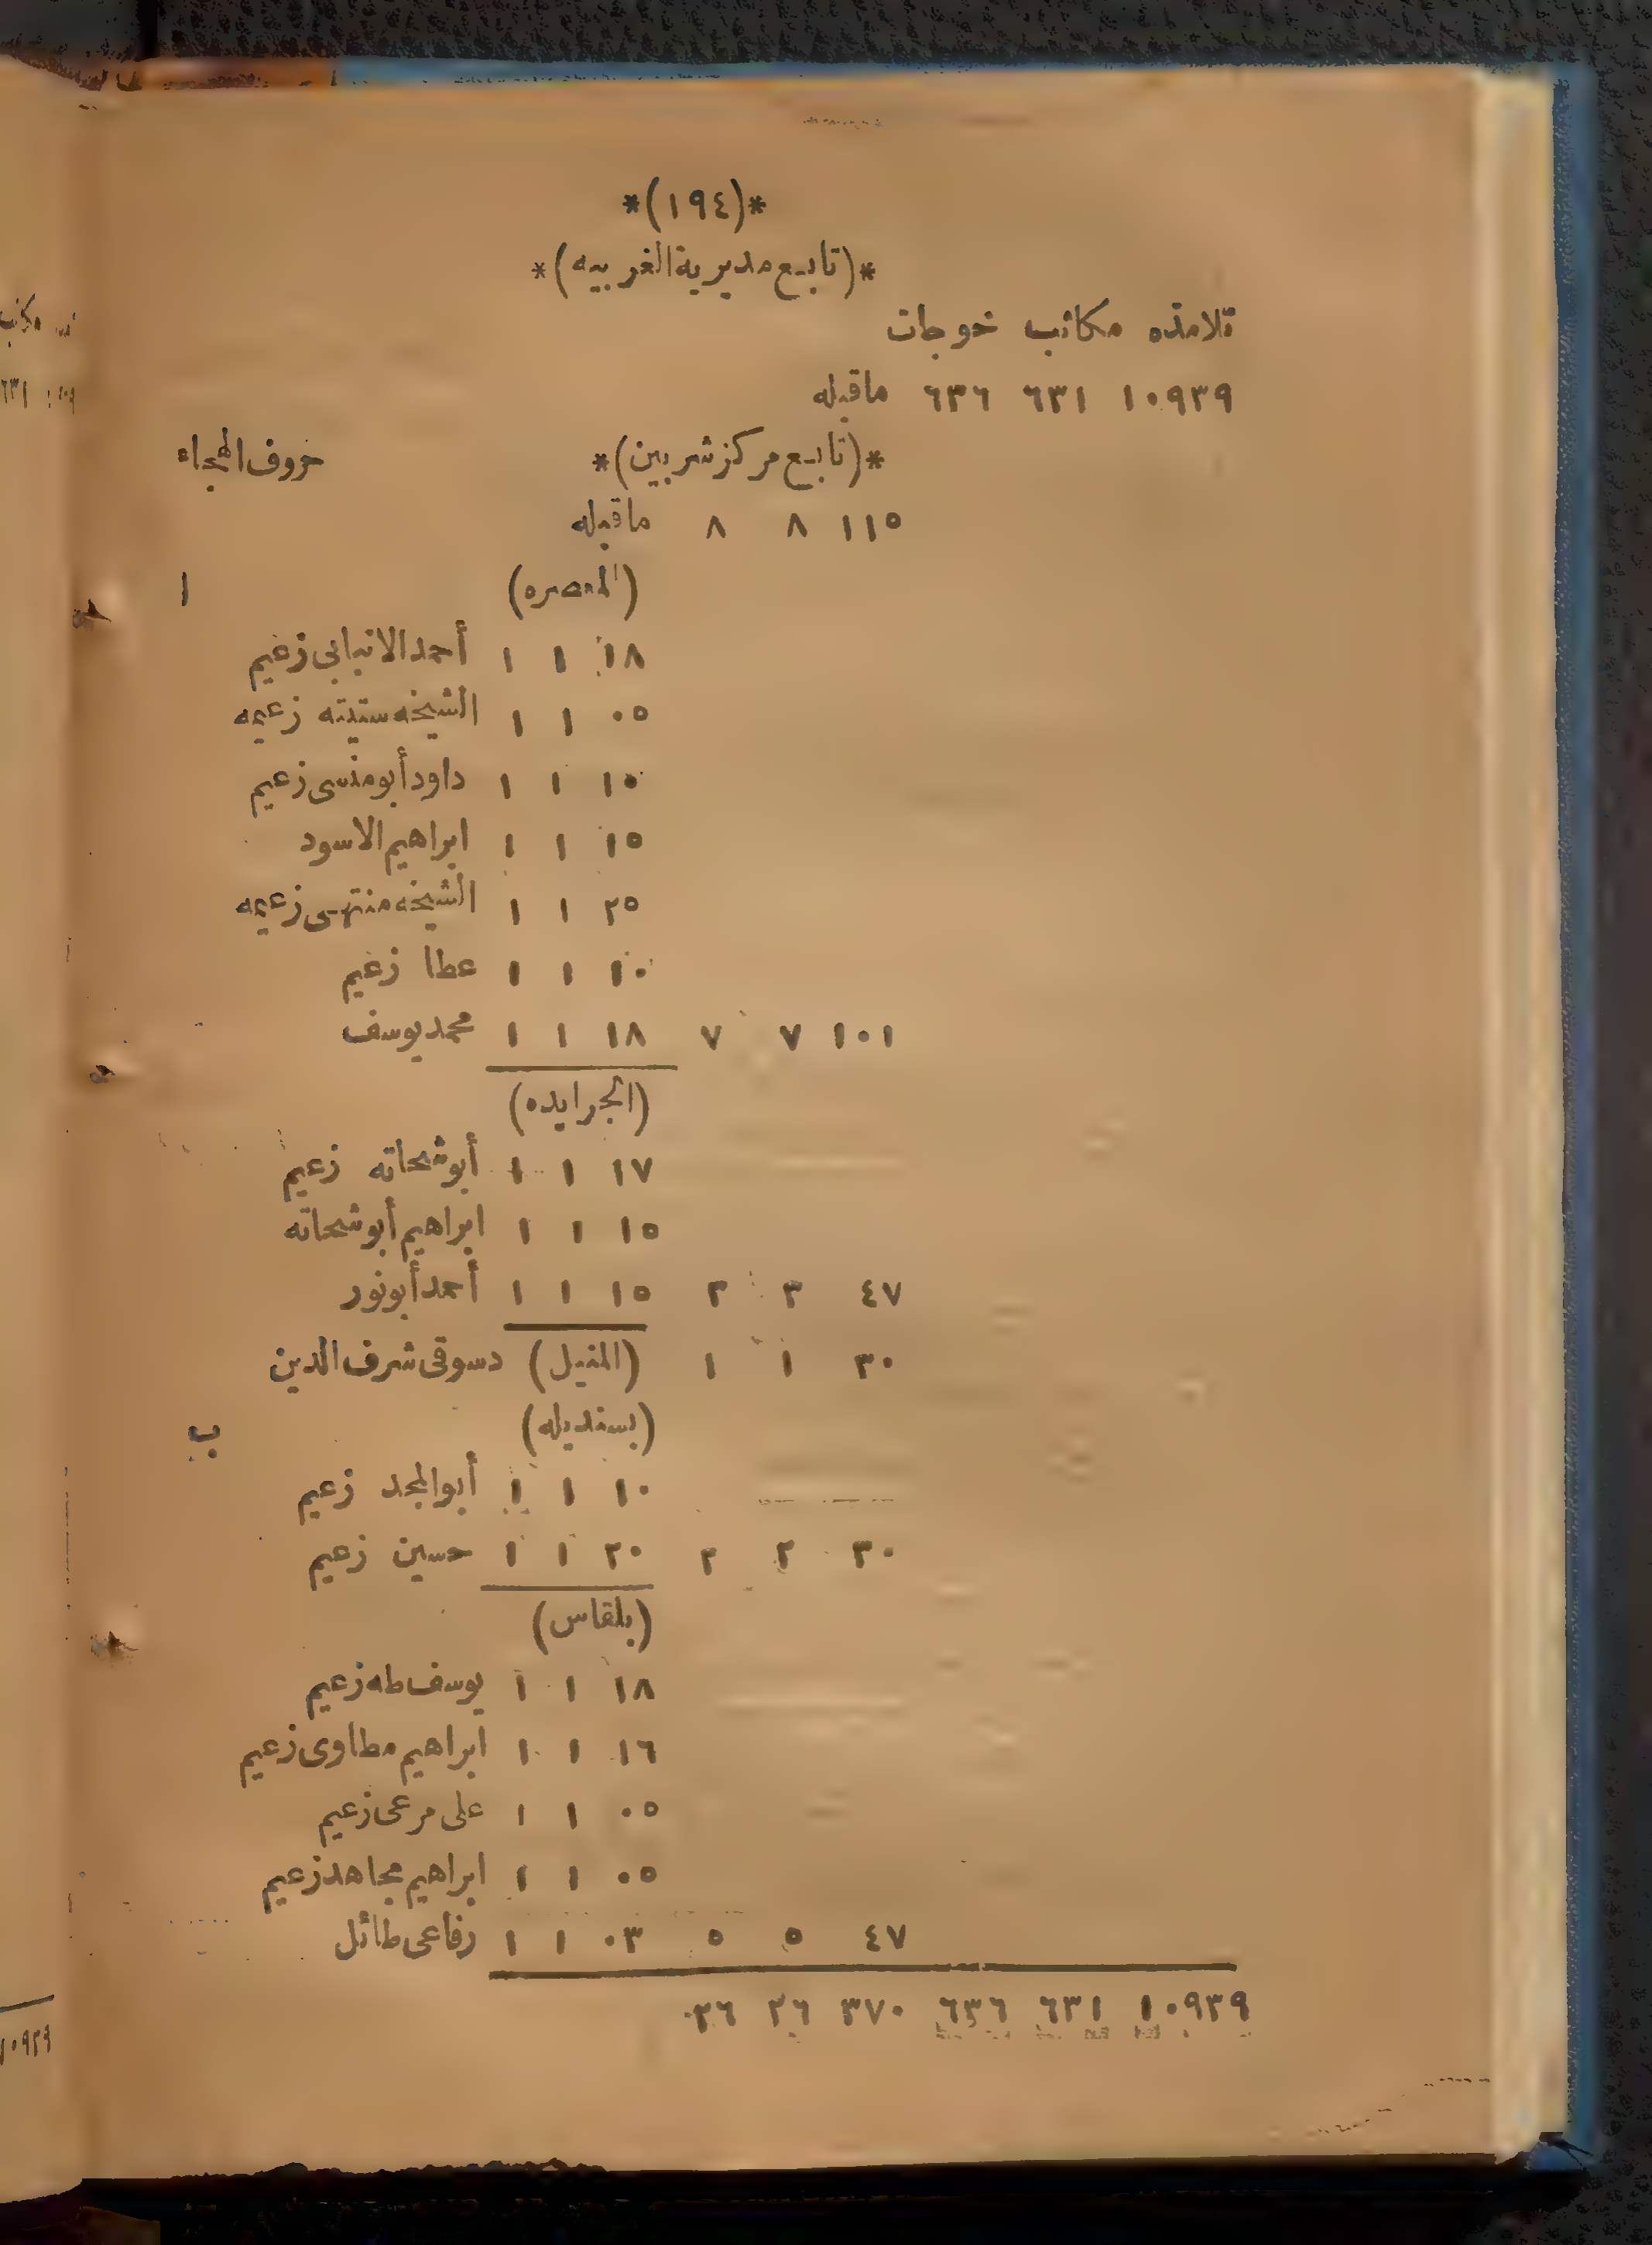 *(١٩٤)*
*(تابع مديرية الغربيه)*
تلامذه مكاتب خوجات
١٠٩٣٩ ٦٣١ ٦٣٦ ماقبله
*(تابع مركز شربين)* حروف الهجاء
١١٥ ٨ ٨ ماقبله
(المعصره) ا
١٨ ١ ١ أحمد الانبابى زعيم
٠٥ ١ ١ الشيخه ستيته زعيمه
١٠ ١ ١ داود أبو منسى زعيم
١٥ ١ ١ ابراهيم الاسود
٢٥ ١ ١ الشيخه منتهى زعيمه
١٠ ١ ١ عطا زعيم
١٠١ ٧ ٧ ١٨ ١ ١ محمد يوسف
(الجرايده)
١٧ ١ ١ أبو شحاته زعيم
١٥ ١ ١ ابراهيم أبو شحاته
٤٧ ٣ ٣ ١٥ ١ ١ أحمد أبو نور
٣٠ ١ ١ (المنيل) دسوقى شرف الدين
(بسنديله) ب
١٠ ١ ١ أبو المجد زعيم
٣٠ ٢ ٢ ٢٠ ١ ١ حسين زعيم
(بلقاس)
١٨ ١ ١ يوسف طه زعيم
١٦ ١ ١ ابراهيم مطاوى زعيم
٠٥ ١ ١ على مرعى زعيم
٠٥ ١ ١ ابراهيم مجاهد زعيم
٤٧ ٥ ٥ ٠٣ ١ ١ رفاعى طائل
١٠٩٣٩ ٦٣١ ٦٣٦ ٣٧٠ ٢٦ ٠٢٦